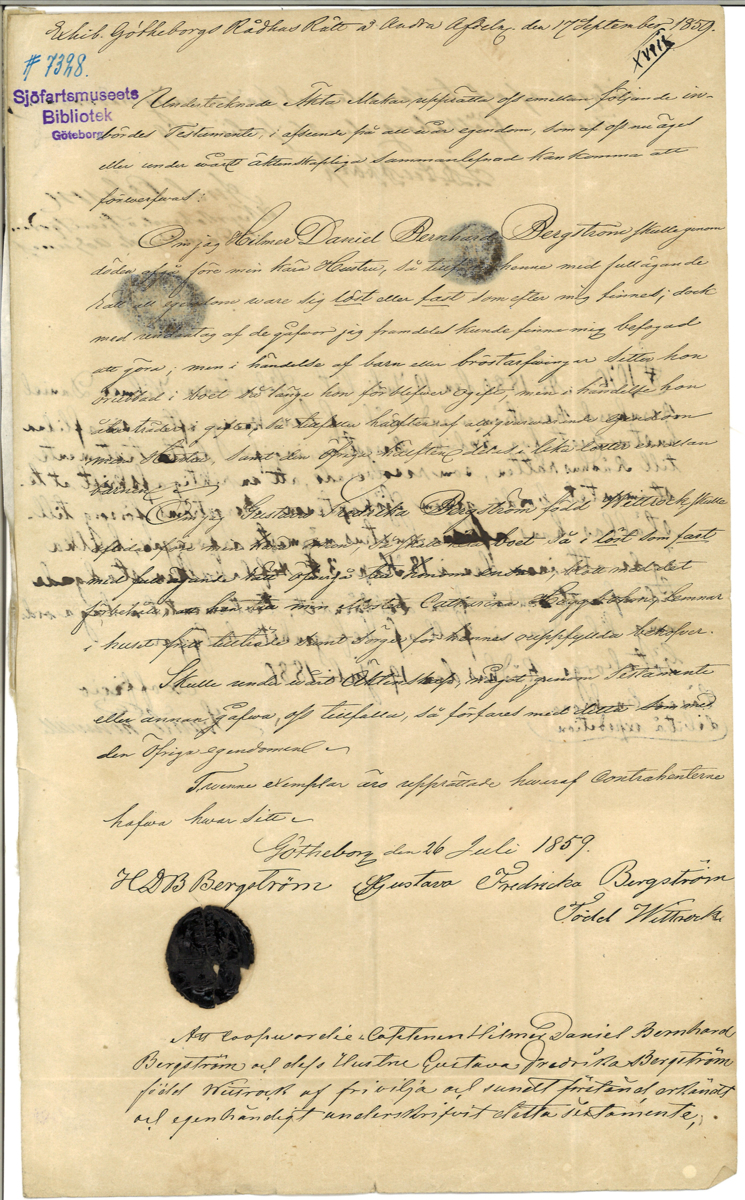 Exhib. Götheborgs Rådhus Rätt å Andra Afdeln. den 17 September 1859.
# 7328.
XVIII
Sjöfartsmuseets
Bibliotek
Göteborg
Undertecknade Äkta Makar upprätta oss emellan följande in-
bördes Testamente, i afseende på all wår egendom, som af oss nu äges
eller under wårt äktenskapliga sammanlefnad kan komma att
förwerfwas:
Om jag Hilmer Daniel Bernhard Bergström skulle genom
döden afgå före min kära Hustru, så tillfaller henne med full ägande
Rätt all egendom ware sig löst eller fast som efter mig finnes; dock
med undantag af de gåfwor jag framdeles kunde finna mig befogad
att göra; men i händelse af barn eller bröstarfwingar sitter hon
orubbad i boet så länge hon förblifwer ogift, men i händelse hon
träder i gifte, så tillfaller hälften af
min Hustru, samt den öfriga hälften deras i lika lotter emellan
barnen
Om jag Gustava Fredrika Bergström född Wittrock skulle
före min boet så i löst som fast
med full ägande Rätt öfvergå till honom dock med det
förbehåll att min Moster Catharina lemnar
i huset fritt tillträde samt sörger för hennes behofwer.
Skulle under wårt Äktenskap, något genom Testamente
eller annan gåfwa, oss tillfalla, så förfares med detta som med
den öfriga egendomen
Twenne exemplar äro upprättade hwaraf Contrahenterne
hafwa hwar sitt
Götheborg den 26 Juli 1859.
HDB Bergström Gustava Fredricka Bergström
Född Wittrock
Att Capitenen Hilmer Daniel Bernhard
Bergström och dess Hustru Gustava Fredrika Bergström
född Wittrock af fri vilja och sundt förstånd erkändt
och egenhändigt underskrifvit detta testamente,